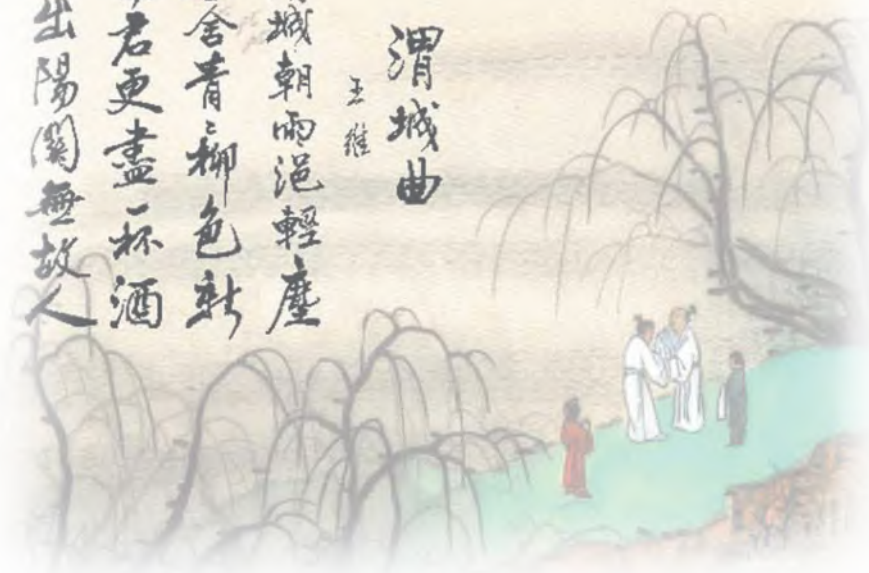 渭城曲
王維
城朝雨浥輕塵
舍青々柳色新
君更盡一杯酒
出陽關無故人